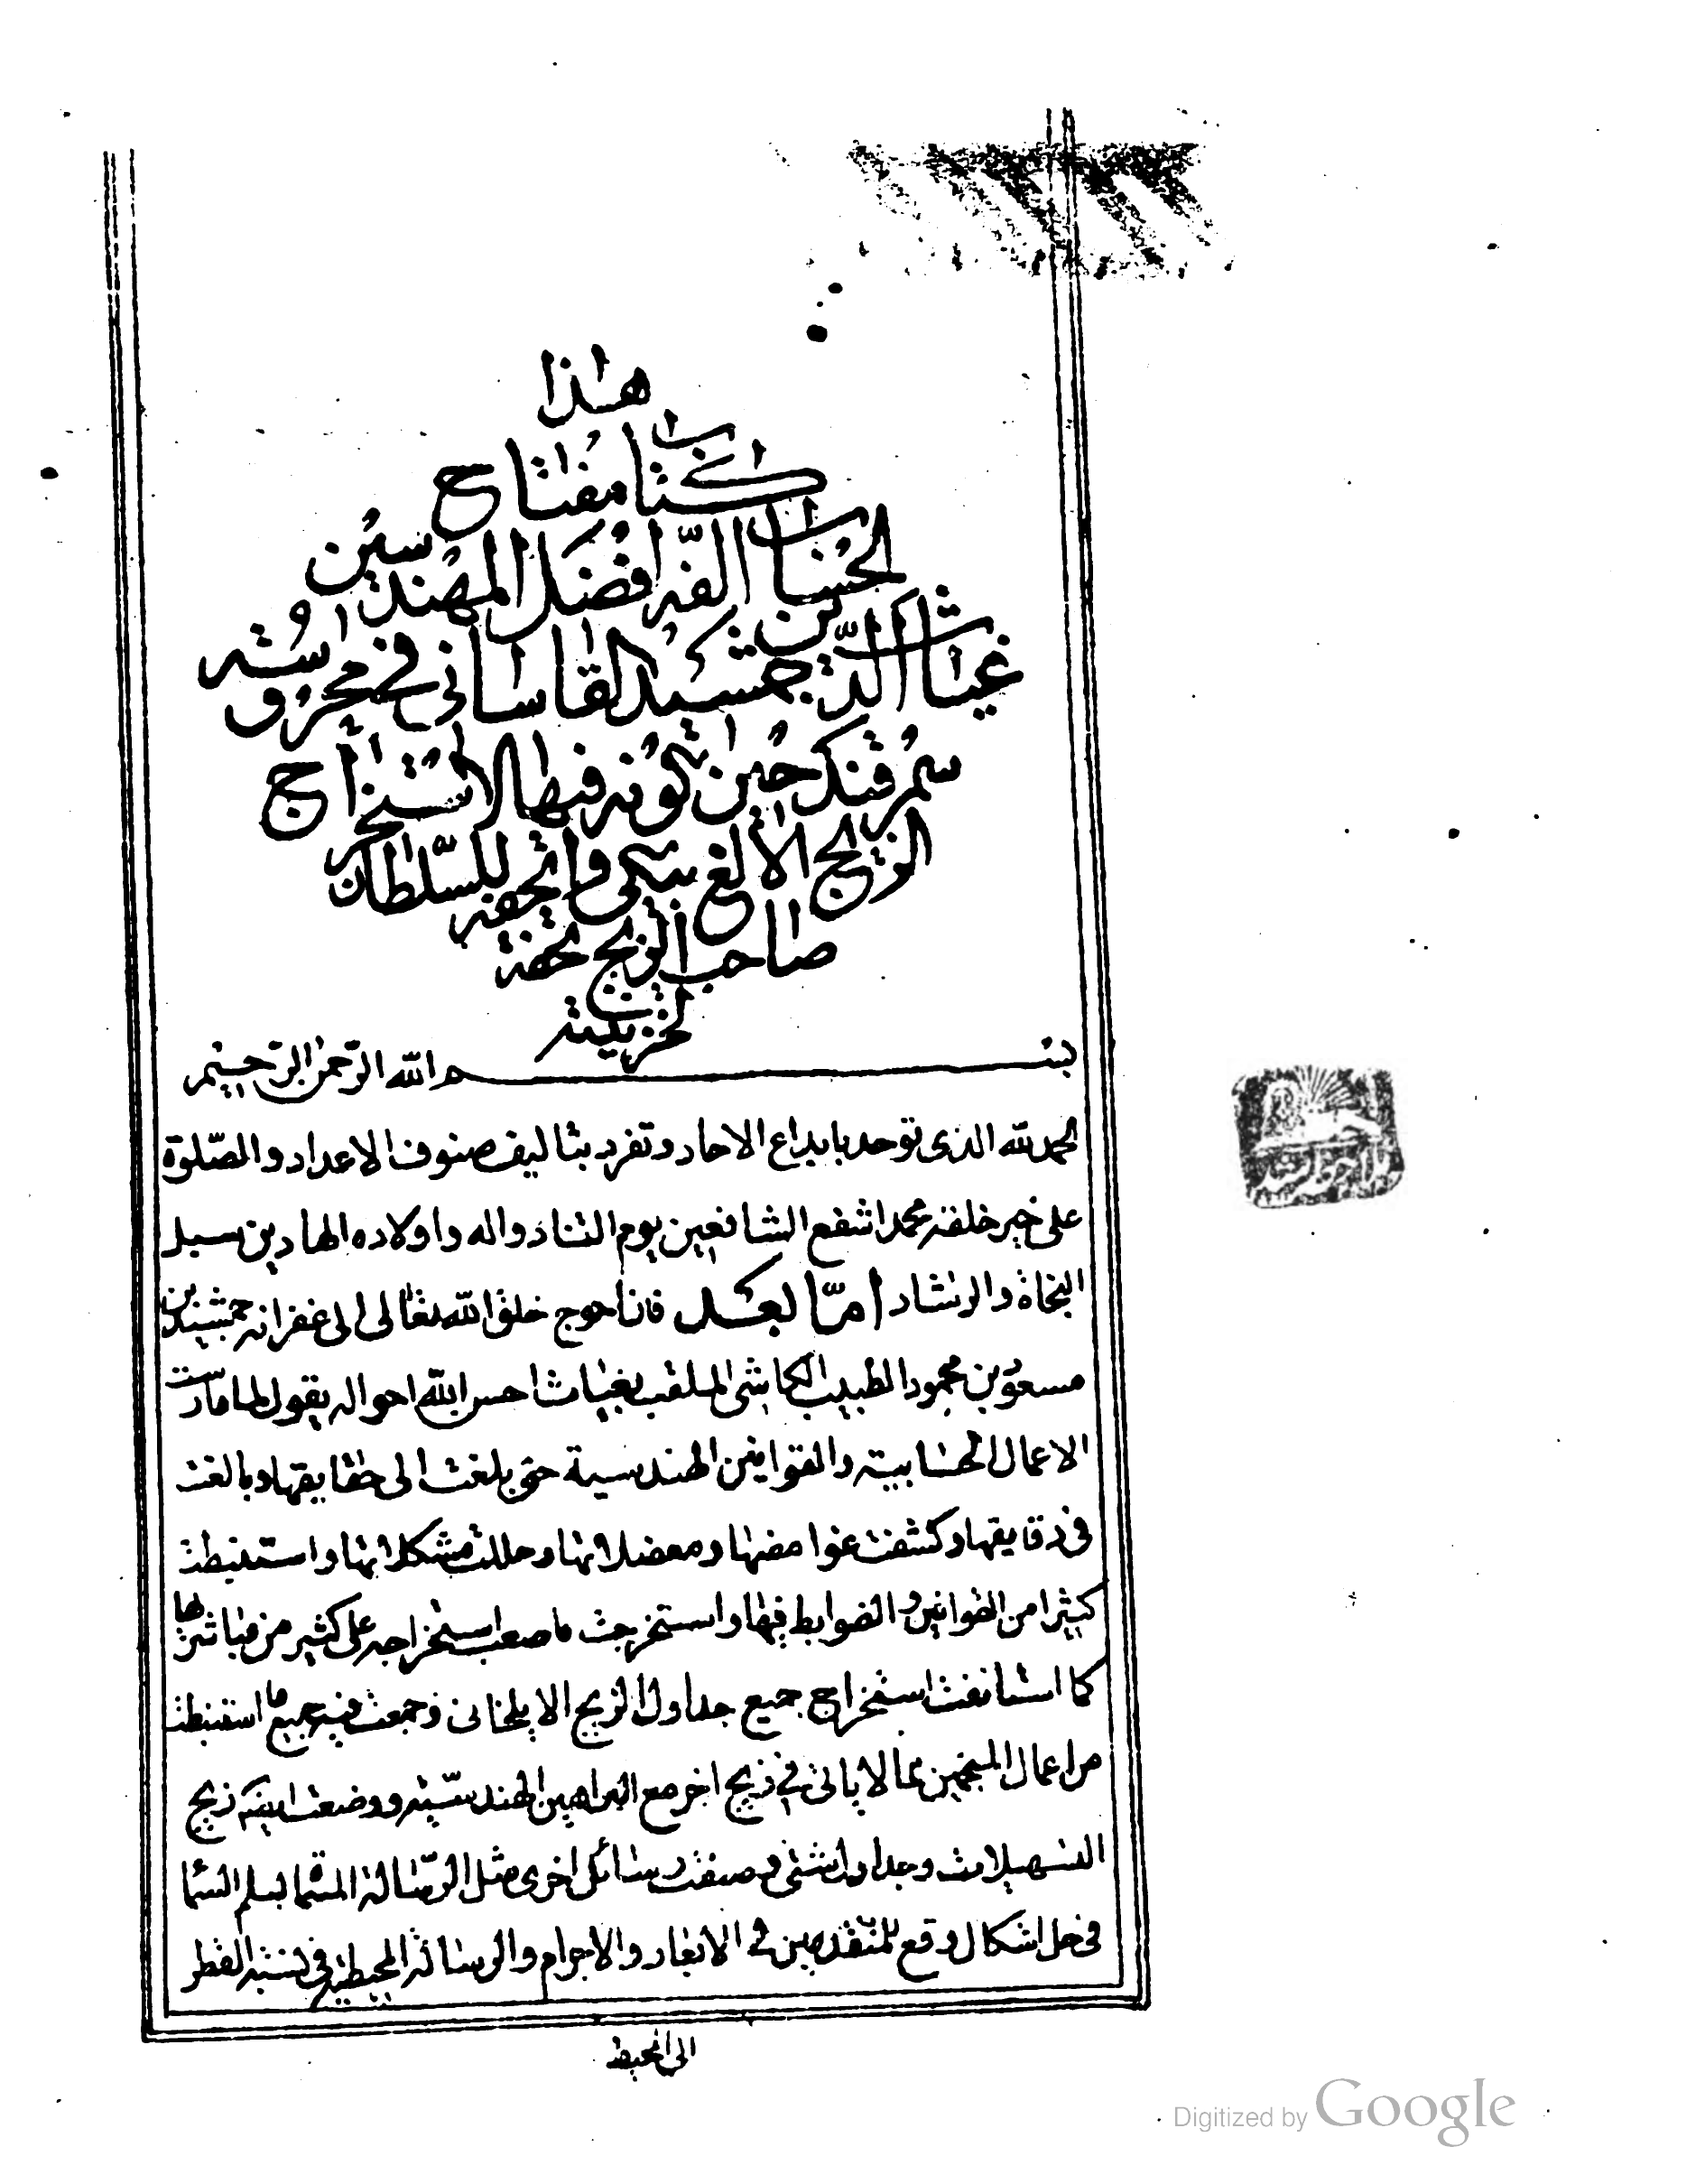 هذا
كتاب مفتاح
الحساب الفه افضل المهندسين
غياث الدين جمشيد القاساني في محروسته
سمرقند حين كونه فيها لاستخراج
الزيج الالغ بيكي واتحفه للسلطان
صاحب الزيج تحفة
لخزينته
بسم الله الرحمن الرحيم
الحمد لله الذى توحد بابداع الاحاد وتفرد بتاليف صنوف الاعداد والصّلوة
على خير خلقه محمد اشفع الشافعين يوم التناد واله واولاده الهادين سبيل
النجاة والرشاد امّا بعد فان احوج خلق الله تعالى الى غفرانه جمشيد بن
مسعود بن محمود الطبيب الكاشى الملقب بغياث احسن الله احواله يقول لما مارست
الاعمال الحسابية والقوانين الهندسية حتى بلغت الى حقايقها وبالغت
فى دقايقها وكشفت غوامضها ومعضلاتها وحللت مشكلاتها واستنبطت
كثيرا من القوانين والضوابط فيها واستخرجت ما صعب استخراجه على كثير من مباشريها
كما استانفت استخراج جميع جداول الزيج الايلخانى وجمعت فيه جميع ما استنبطت
من اعمال المنجمين بما لا ياتى فى زيج اخر مع البراهين الهندسية ووضعت ايضا زيج
التسهيلات وجداول شتى وصنفت رسائل اخرى مثل الرسالة المسماة بسلم السما
فى حل اشكال وقع للمتقدمين فى الابعاد والاجرام والرسالة المحيطية فى نسبة القطر
الى المحيط
Digitized by Google